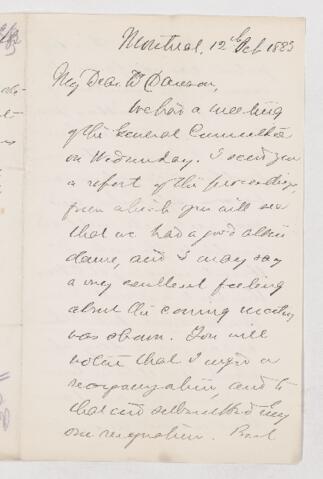 Montreal, 12th Oct 1883
My Dear Dr Dawson,
We had a meeting
of the General Committee
on Wednesday. I send you
a report of the proceedings,
from which you will see
that we had a good atten
dance, and I may say
a very excellent feeling
about the coming meeting
was shown. You will
notice that I urged a
reorganization, and to
that end submitted my
own resignation. But